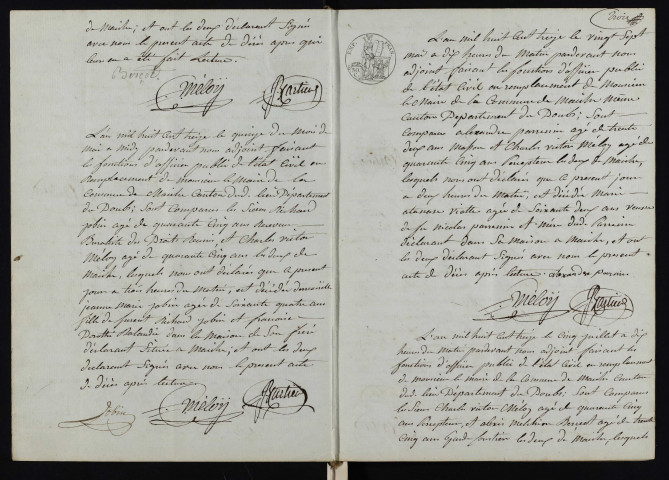 de Maiche; et ont les deux déclarant Signés
avec nous le present acte de décès après que
leur en a été fait Lecture.
Méloy Cartier
L'an mil huit Cent treize le quinze du Mois de
mai a midy pardevant nous adjoint faisant
les fonctions d'officier public de l'état Civil en
remplacement de monsieur le Maire de la
Commune de Maiche Canton dud. lieu Département
du Doubs; Sont Comparus les Sieurs Richard
jobin agé de quarante Cinq ans Receveur
Buraliste des Droits Réunis, et Charles victor
Meloy agé de quarante Cinq ans les deux de
Maiche, lesquels nous ont déclarés que le present
jour a trois heures du Matin, est décédée demoiselle
jeanne Marie jobin agée de Soixante quatre ans
fille de furent Richard jobin et françoise
Dorothé dans la Maison de Son frere
déclarant Située a Maiche; et ont les deux
declarant Signés avec nous le present acte
de Décès après lecture.
Jobin Méloy Cartier
Trois
L'an mil huit Cent treize le vingt Sept
mai a dix heures du Matin pardevant nous
adjoint faisant les fonctions d'officier public
de l'état Civil en remplacement de Monsieur
le Maire de la Commune de Maiche Même
Canton Département du Doubs; Sont
Comparus alexandre agé de trente
deux ans Masson et Charles victor Meloy agé de
quarante Cinq ans Percepteur les deux de Maiche,
lesquels nous ont déclarés que le present jour
a deux heures du Matin, est décédée Marie
viatte agée de Soixante deux ans veuve
de fu Nicolas et mere dud.
déclarant dans Sa Maison a Maiche, et ont
les deux déclarant Signés avec nous le present
acte de décès après lecture.
Méloy Cartier
L'an mil huit Cent treize le Cinq juillet a dix
heures du Matin pardevant nous adjoint faisant les
fonctions d'officier public de l'état Civil en remplacement
de monsieur le maire de la Commune de Maiche Canton
dud. lieu Département du Doubs; Sont Comparus
les Sieurs Charles victor Meloy agé de quarante Cinq
ans Percepteur, et alexis Melchior agé de trente
Cinq ans Garde forêtier les deux de Maiche, lesquels